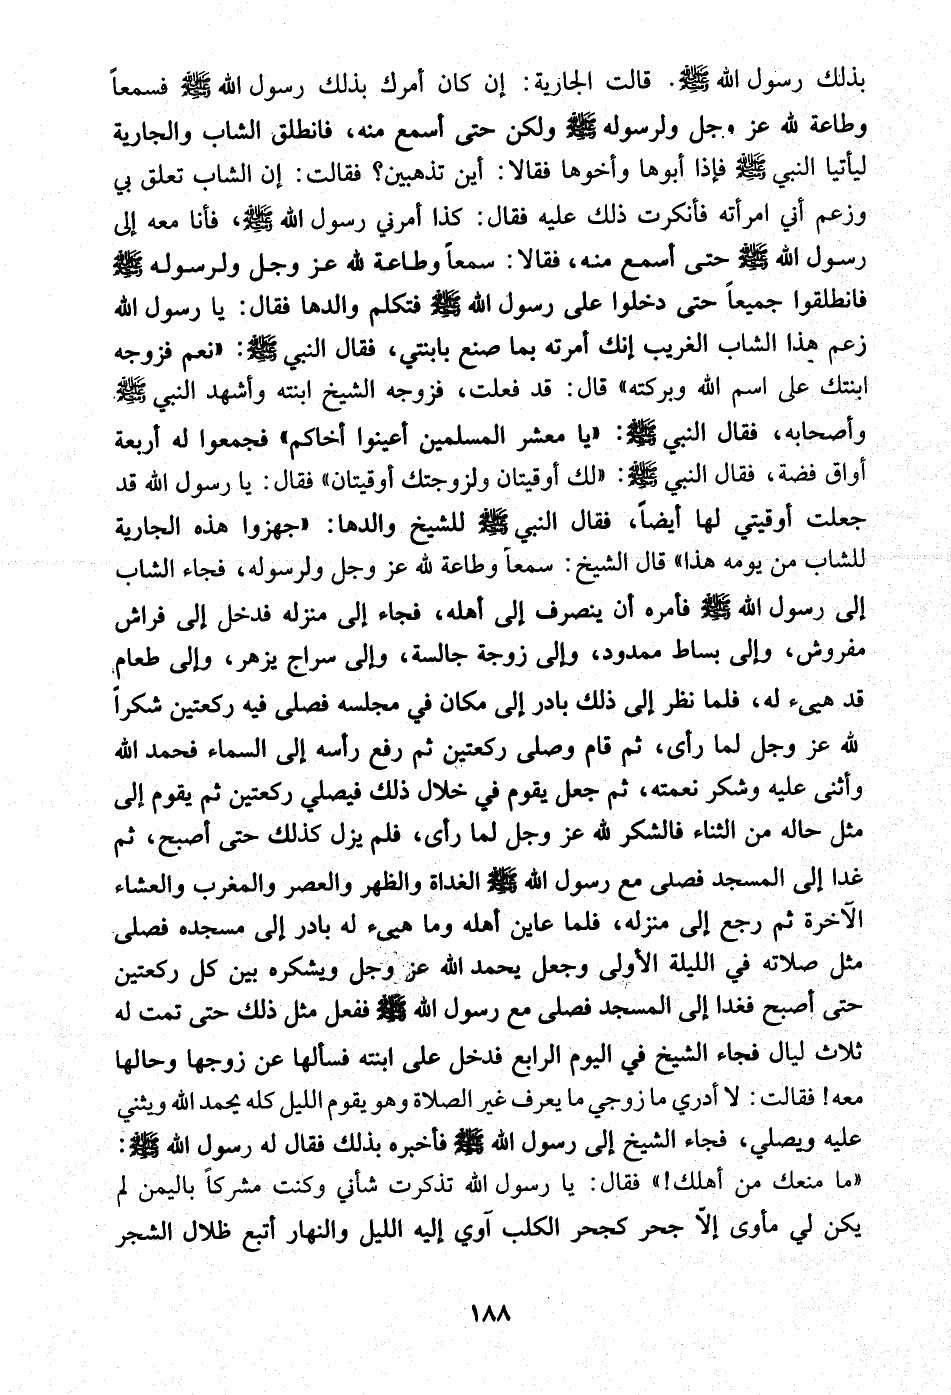 بذلك رسول الله ﷺ. قالت الجارية: إن كان أمرك بذلك رسول الله ﷺ فسمعاً
وطاعة لله عز وجل ولرسوله ﷺ ولكن حتى أسمع منه، فانطلق الشاب والجارية
ليأتيا النبي ﷺ فإذا أبوها وأخوها فقالا: أين تذهبين؟ فقالت: إن الشاب تعلق بي
وزعم أني امرأته فأنكرت ذلك عليه فقال: كذا أمرني رسول الله ﷺ، فأنا معه إلى
رسول الله ﷺ حتى أسمع منه، فقالا: سمعاً وطاعة لله عز وجل ولرسوله ﷺ
فانطلقوا جميعاً حتى دخلوا على رسول الله ﷺ فتكلم والدها فقال: يا رسول الله
زعم هذا الشاب الغريب إنك أمرته بما صنع بابنتي، فقال النبي ﷺ: «نعم فزوجه
ابنتك على اسم الله وبركته» قال: قد فعلت، فزوجه الشيخ ابنته وأشهد النبي ﷺ
وأصحابه، فقال النبي ﷺ: «يا معشر المسلمين أعينوا أخاكم» فجمعوا له أربعة
أواق فضة، فقال النبي ﷺ: «لك أوقيتان ولزوجتك أوقيتان» فقال: يا رسول الله قد
جعلت أوقيتي لها أيضاً، فقال النبي ﷺ للشيخ والدها: «جهزوا هذه الجارية
للشاب من يومه هذا» قال الشيخ: سمعاً وطاعة لله عز وجل ولرسوله، فجاء الشاب
إلى رسول الله ﷺ فأمره أن ينصرف إلى أهله، فجاء إلى منزله فدخل إلى فراش
مفروش، وإلى بساط ممدود، وإلى زوجة جالسة، وإلى سراج يزهر، وإلى طعام
قد هيىء له، فلما نظر إلى ذلك بادر إلى مكان في مجلسه فصلى فيه ركعتين شكراً
لله عز وجل لما رأى، ثم قام وصلى ركعتين ثم رفع رأسه إلى السماء فحمد الله
وأثنى عليه وشكر نعمته، ثم جعل يقوم في خلال ذلك فيصلي ركعتين ثم يقوم إلى
مثل حاله من الثناء فالشكر لله عز وجل لما رأى، فلم يزل كذلك حتى أصبح، ثم
غدا إلى المسجد فصلى مع رسول الله ﷺ الغداة والظهر والعصر والمغرب والعشاء
الآخرة ثم رجع إلى منزله، فلما عاين أهله وما هيىء له بادر إلى مسجده فصلى
مثل صلاته في الليلة الأولى وجعل يحمد الله عز وجل ويشكره بين كل ركعتين
حتى أصبح فغدا إلى المسجد فصلى مع رسول الله ﷺ ففعل مثل ذلك حتى تمت له
ثلاث ليال فجاء الشيخ في اليوم الرابع فدخل على ابنته فسألها عن زوجها وحالها
معه! فقالت: لا أدري ما زوجي ما يعرف غير الصلاة وهو يقوم الليل كله يحمد الله ويثني
عليه ويصلي، فجاء الشيخ إلى رسول الله ﷺ فأخبره بذلك فقال له رسول الله ﷺ:
«ما منعك من أهلك!» فقال: يا رسول الله تذكرت شأني وكنت مشركاً باليمن لم
يكن لي مأوى إلاّ جحر كجحر الكلب آوي إليه الليل والنهار أتبع ظلال الشجر
١٨٨